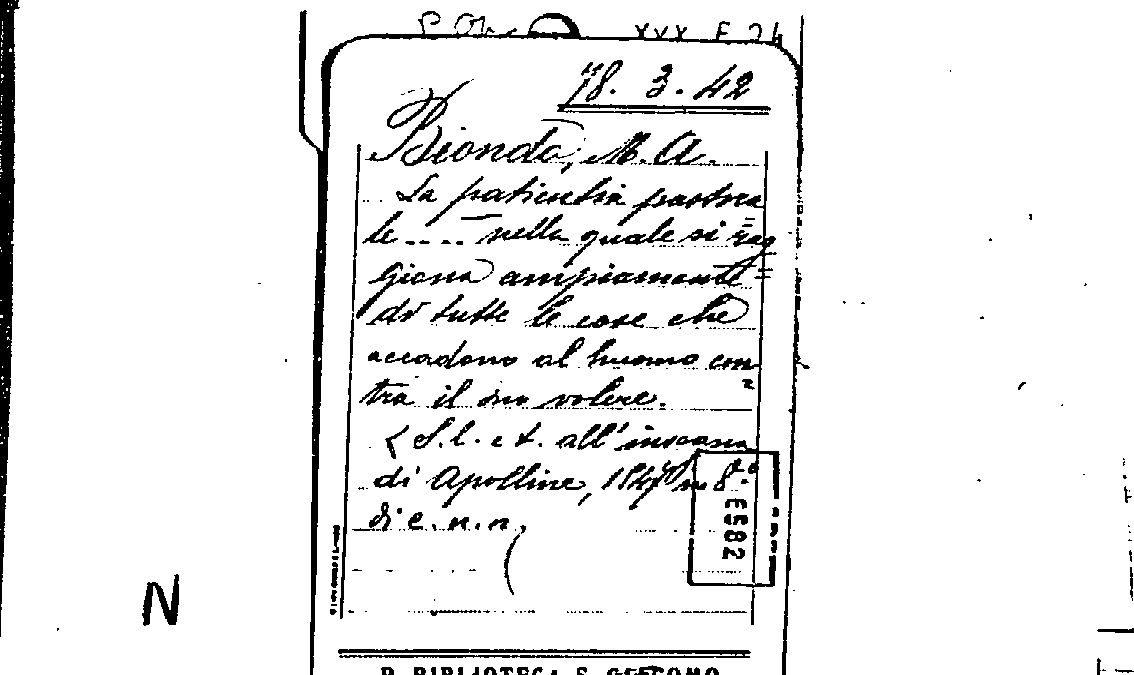 XXX F 24
78. 3. 42
Biondo, M. A.
La patientia pastora
le .... nella quale si rag
giona ampiamente
di tutte le cose che
accadono al huomo con
tra il suo volere.
S. l. e t. all'insegna
di Apolline, 1547 in 8°
di c. n. n.
E582
N
R BIBLIOTECA S. GIACOMO